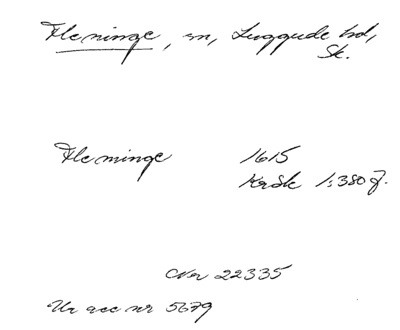 Fleninge, sn, Luggude hd,
Sk.
Fleninge 1615
KrSk 1:380 f.
Nr 22335
Ur acc nr 5679